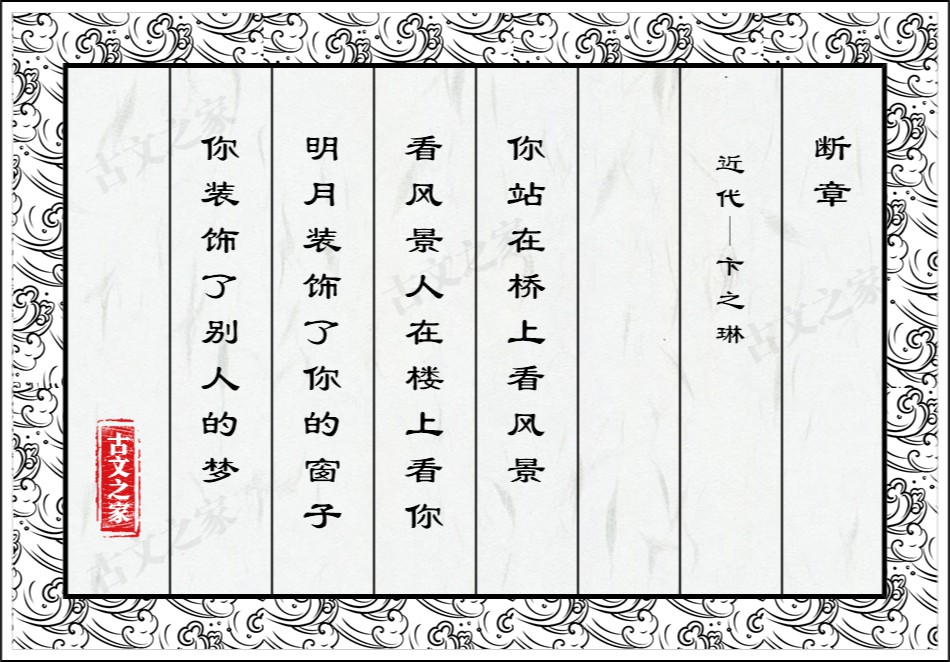 断章
近代—卞之琳
你站在桥上看风景
看风景人在楼上看你
明月装饰了你的窗子
你装饰了别人的梦
古文之家
古文之家
古文之家
古文之家
古文之家